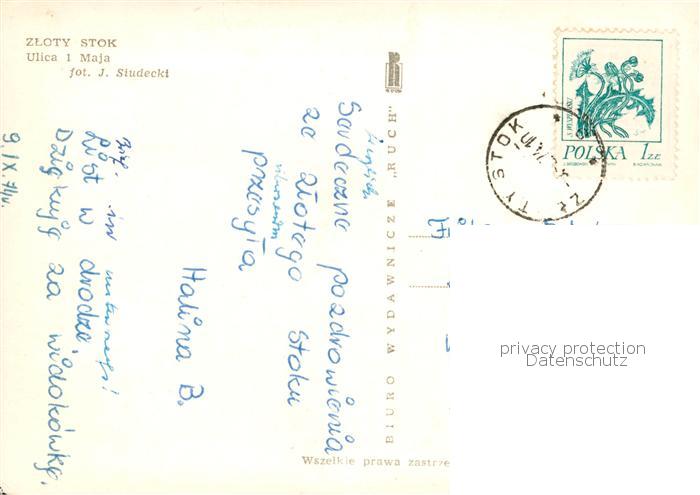 ZŁOTY STOK
Ulica 1 Maja
fot. J. Siudecki
Serdeczne pozdrowienia
za złotego Stoku
przesyła
Halina B.
List w drodze,
Dziękuję za widokówkę.
9.IX.74
BIURO WYDAWNICZE „RUCH”
Wszelkie prawa zastrze
S. WYSPIAŃSKI
POLSKA 1 ZŁ
TY STOK
privacy protection
Datenschutz